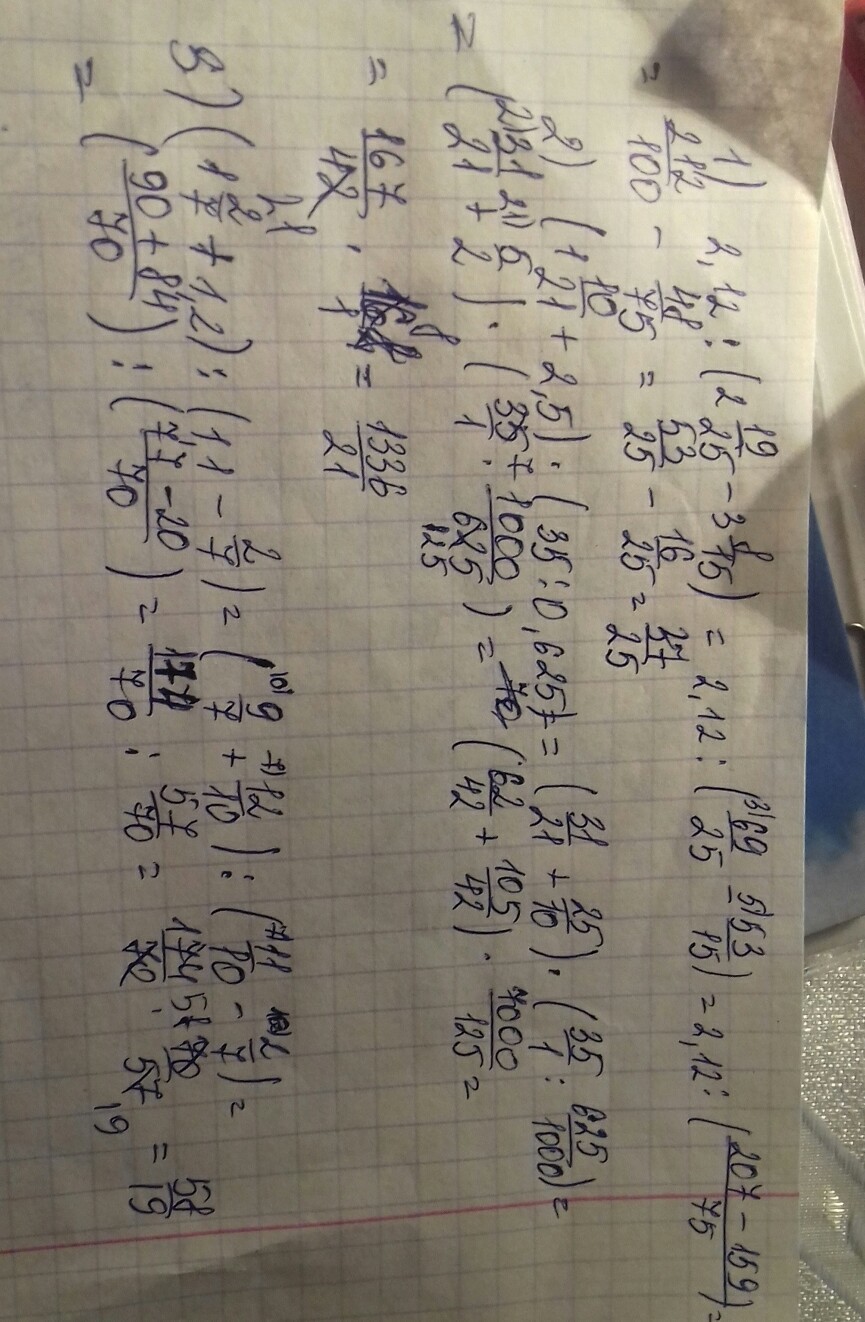 1) 2,12 : (2 19/25 - 3 8/15) = 2,12 : (3) 69/25 - 5) 53/15) = 2,12 : ((207 - 159)/75) =
= 212/100 - 48/75 = 53/25 - 16/25 = 37/25
2) (1 10/21 + 2,5) : (35 : 0,625) = (31/21 + 25/10) · (35/1 : 625/1000) =
= (2) 31/21 + 21) 5/2) · (35/1 · 1000/625 125) = (62/42 + 105/42) · 7000/125 =
= 167/42 · = 1336/21
(1 2/7 + 1,2) : (11 - 2/7) = (10) 9/7 + 7) 12/10) : (7) 11/10 - 10) 2/7) =
= ((90 + 84)/70) : ((77 - 20)/70) = 174/70 : 57/70 = 174/70 · 70/57 19 = 58/19